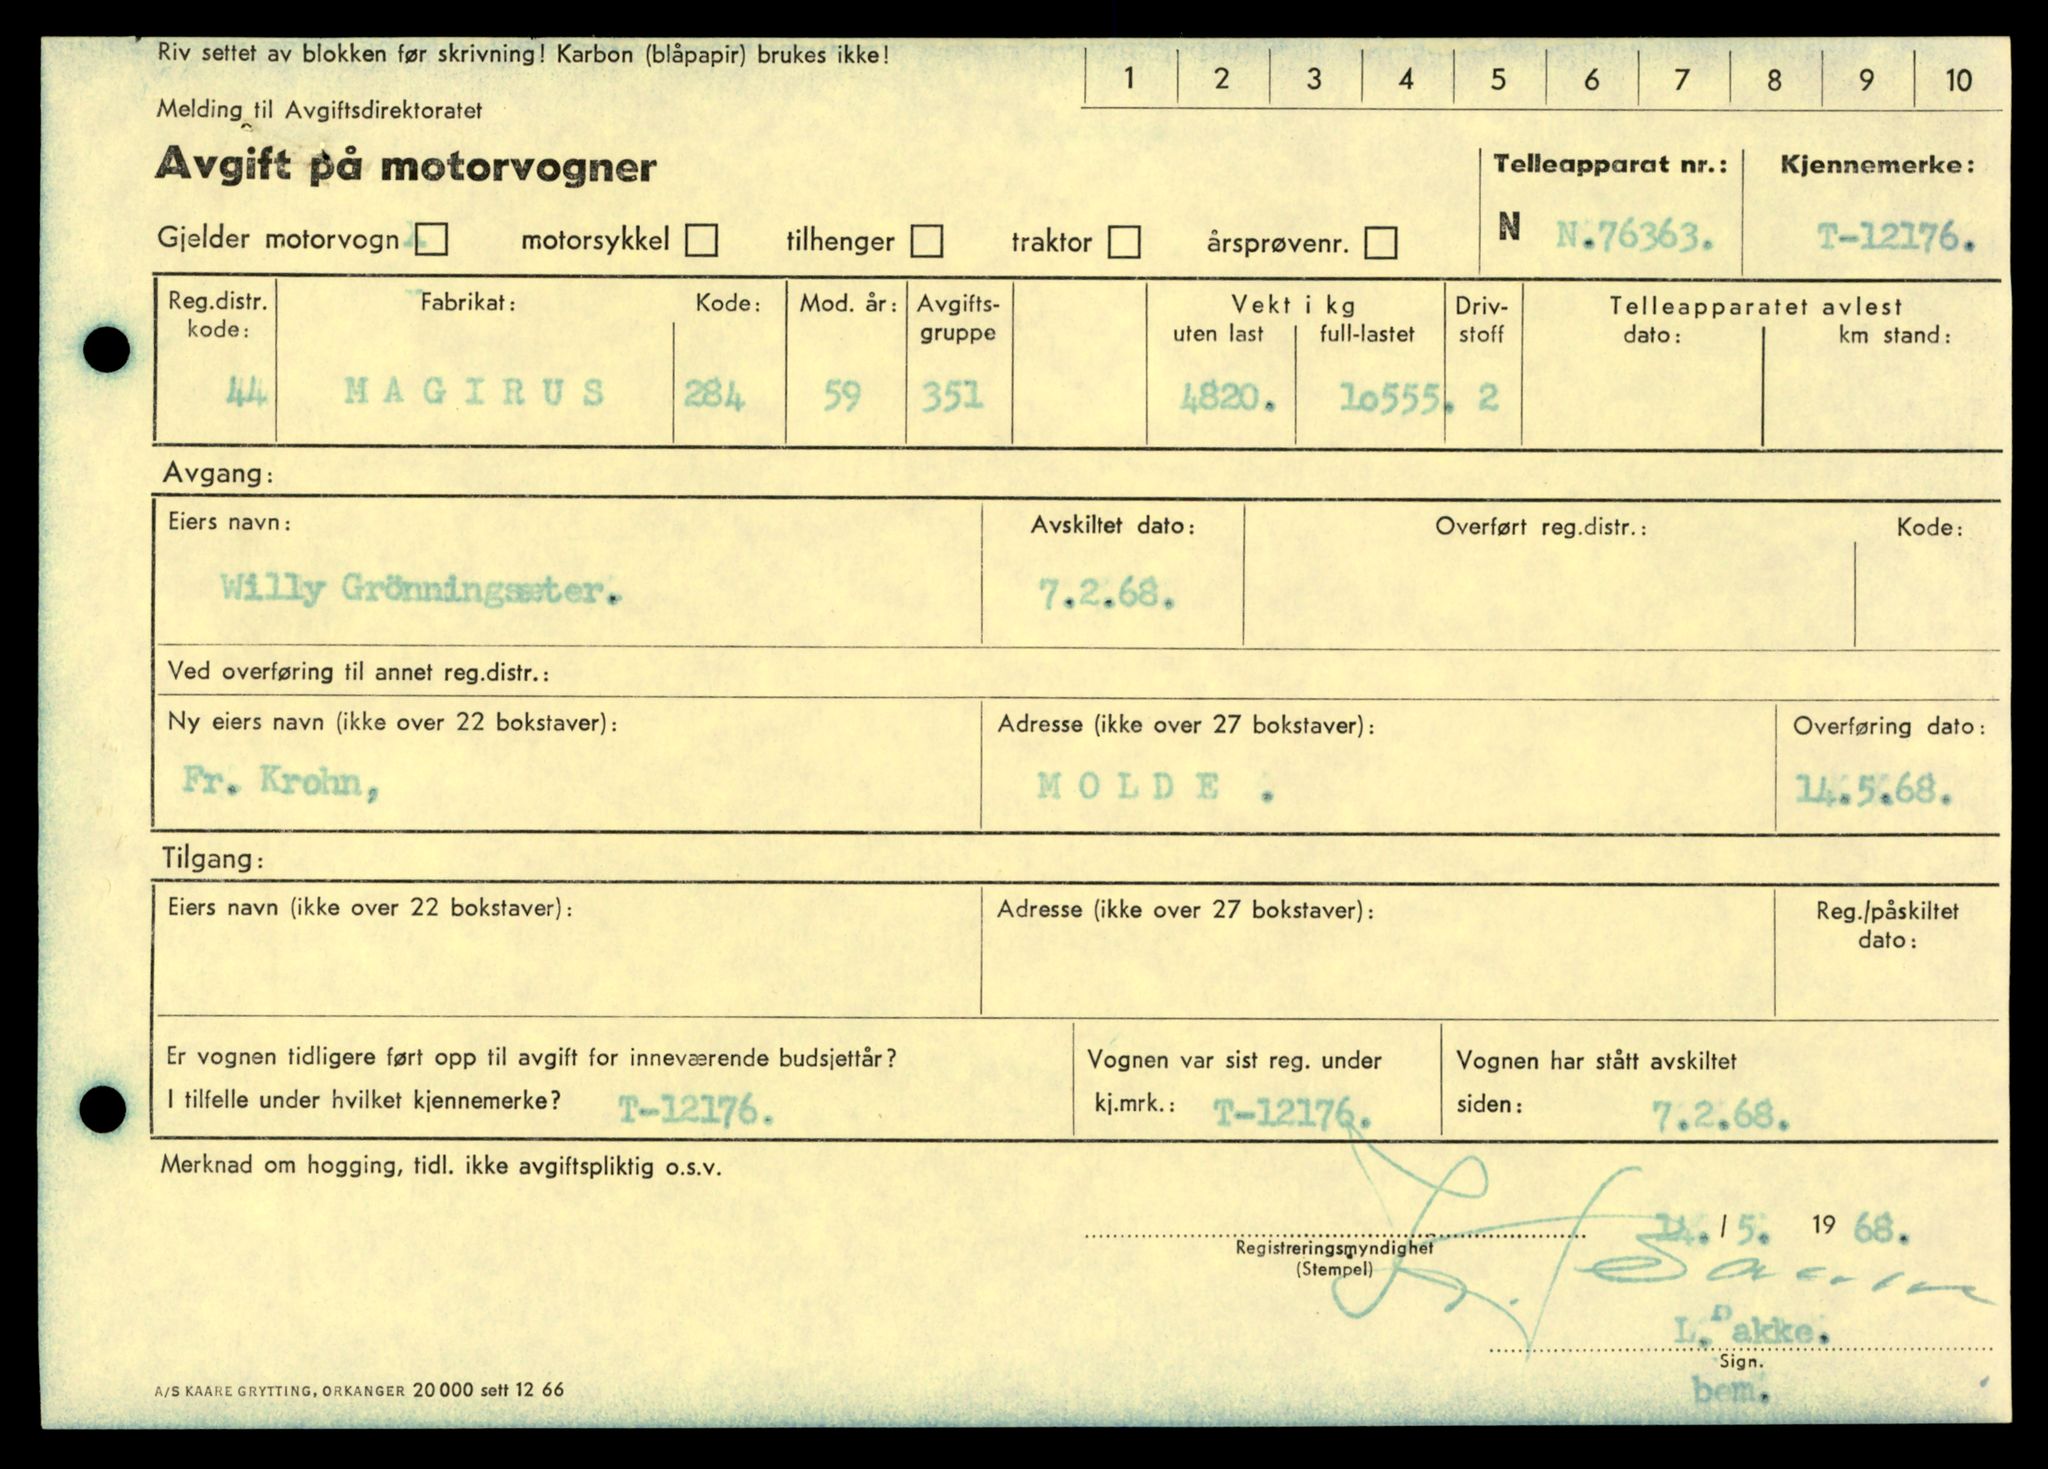 Riv settet av blokken før skrivning! Karbon (blåpapir) brukes ikke!
1 2 3 4 5 6 7 8 9 10
Melding til Avgiftsdirektoratet
Avgift på motorvogner
Telleapparat nr.: Kjennemerke:
N N.76363. T-12176.
Gjelder motorvogn motorsykkel tilhenger traktor årsprøvenr.
Reg.distr. kode: Fabrikat: Kode: Mod. år: Avgifts-gruppe Vekt i kg uten last full-lastet Driv-stoff Telleapparatet avlest dato: km stand:
44 MAGIRUS 284 59 351 4820. 10555. 2
Avgang:
Eiers navn: Avskiltet dato: Overført reg.distr.: Kode:
Willy Grönningsæter. 7.2.68.
Ved overføring til annet reg.distr.:
Ny eiers navn (ikke over 22 bokstaver): Adresse (ikke over 27 bokstaver): Overføring dato:
Fr. Krohn, MOLDE . 14.5.68.
Tilgang:
Eiers navn (ikke over 22 bokstaver): Adresse (ikke over 27 bokstaver): Reg./påskiltet dato:
Er vognen tidligere ført opp til avgift for inneværende budsjettår? Vognen var sist reg. under Vognen har stått avskiltet
I tilfelle under hvilket kjennemerke? T-12176. kj.mrk.: T-12176. siden: 7.2.68.
Merknad om hogging, tidl. ikke avgiftspliktig o.s.v.
14. / 5. 19 68.
Registreringsmyndighet
(Stempel)
L. Bakke.
Sign.
bem.
A/S KAARE GRYTTING, ORKANGER 20 000 sett 12 66